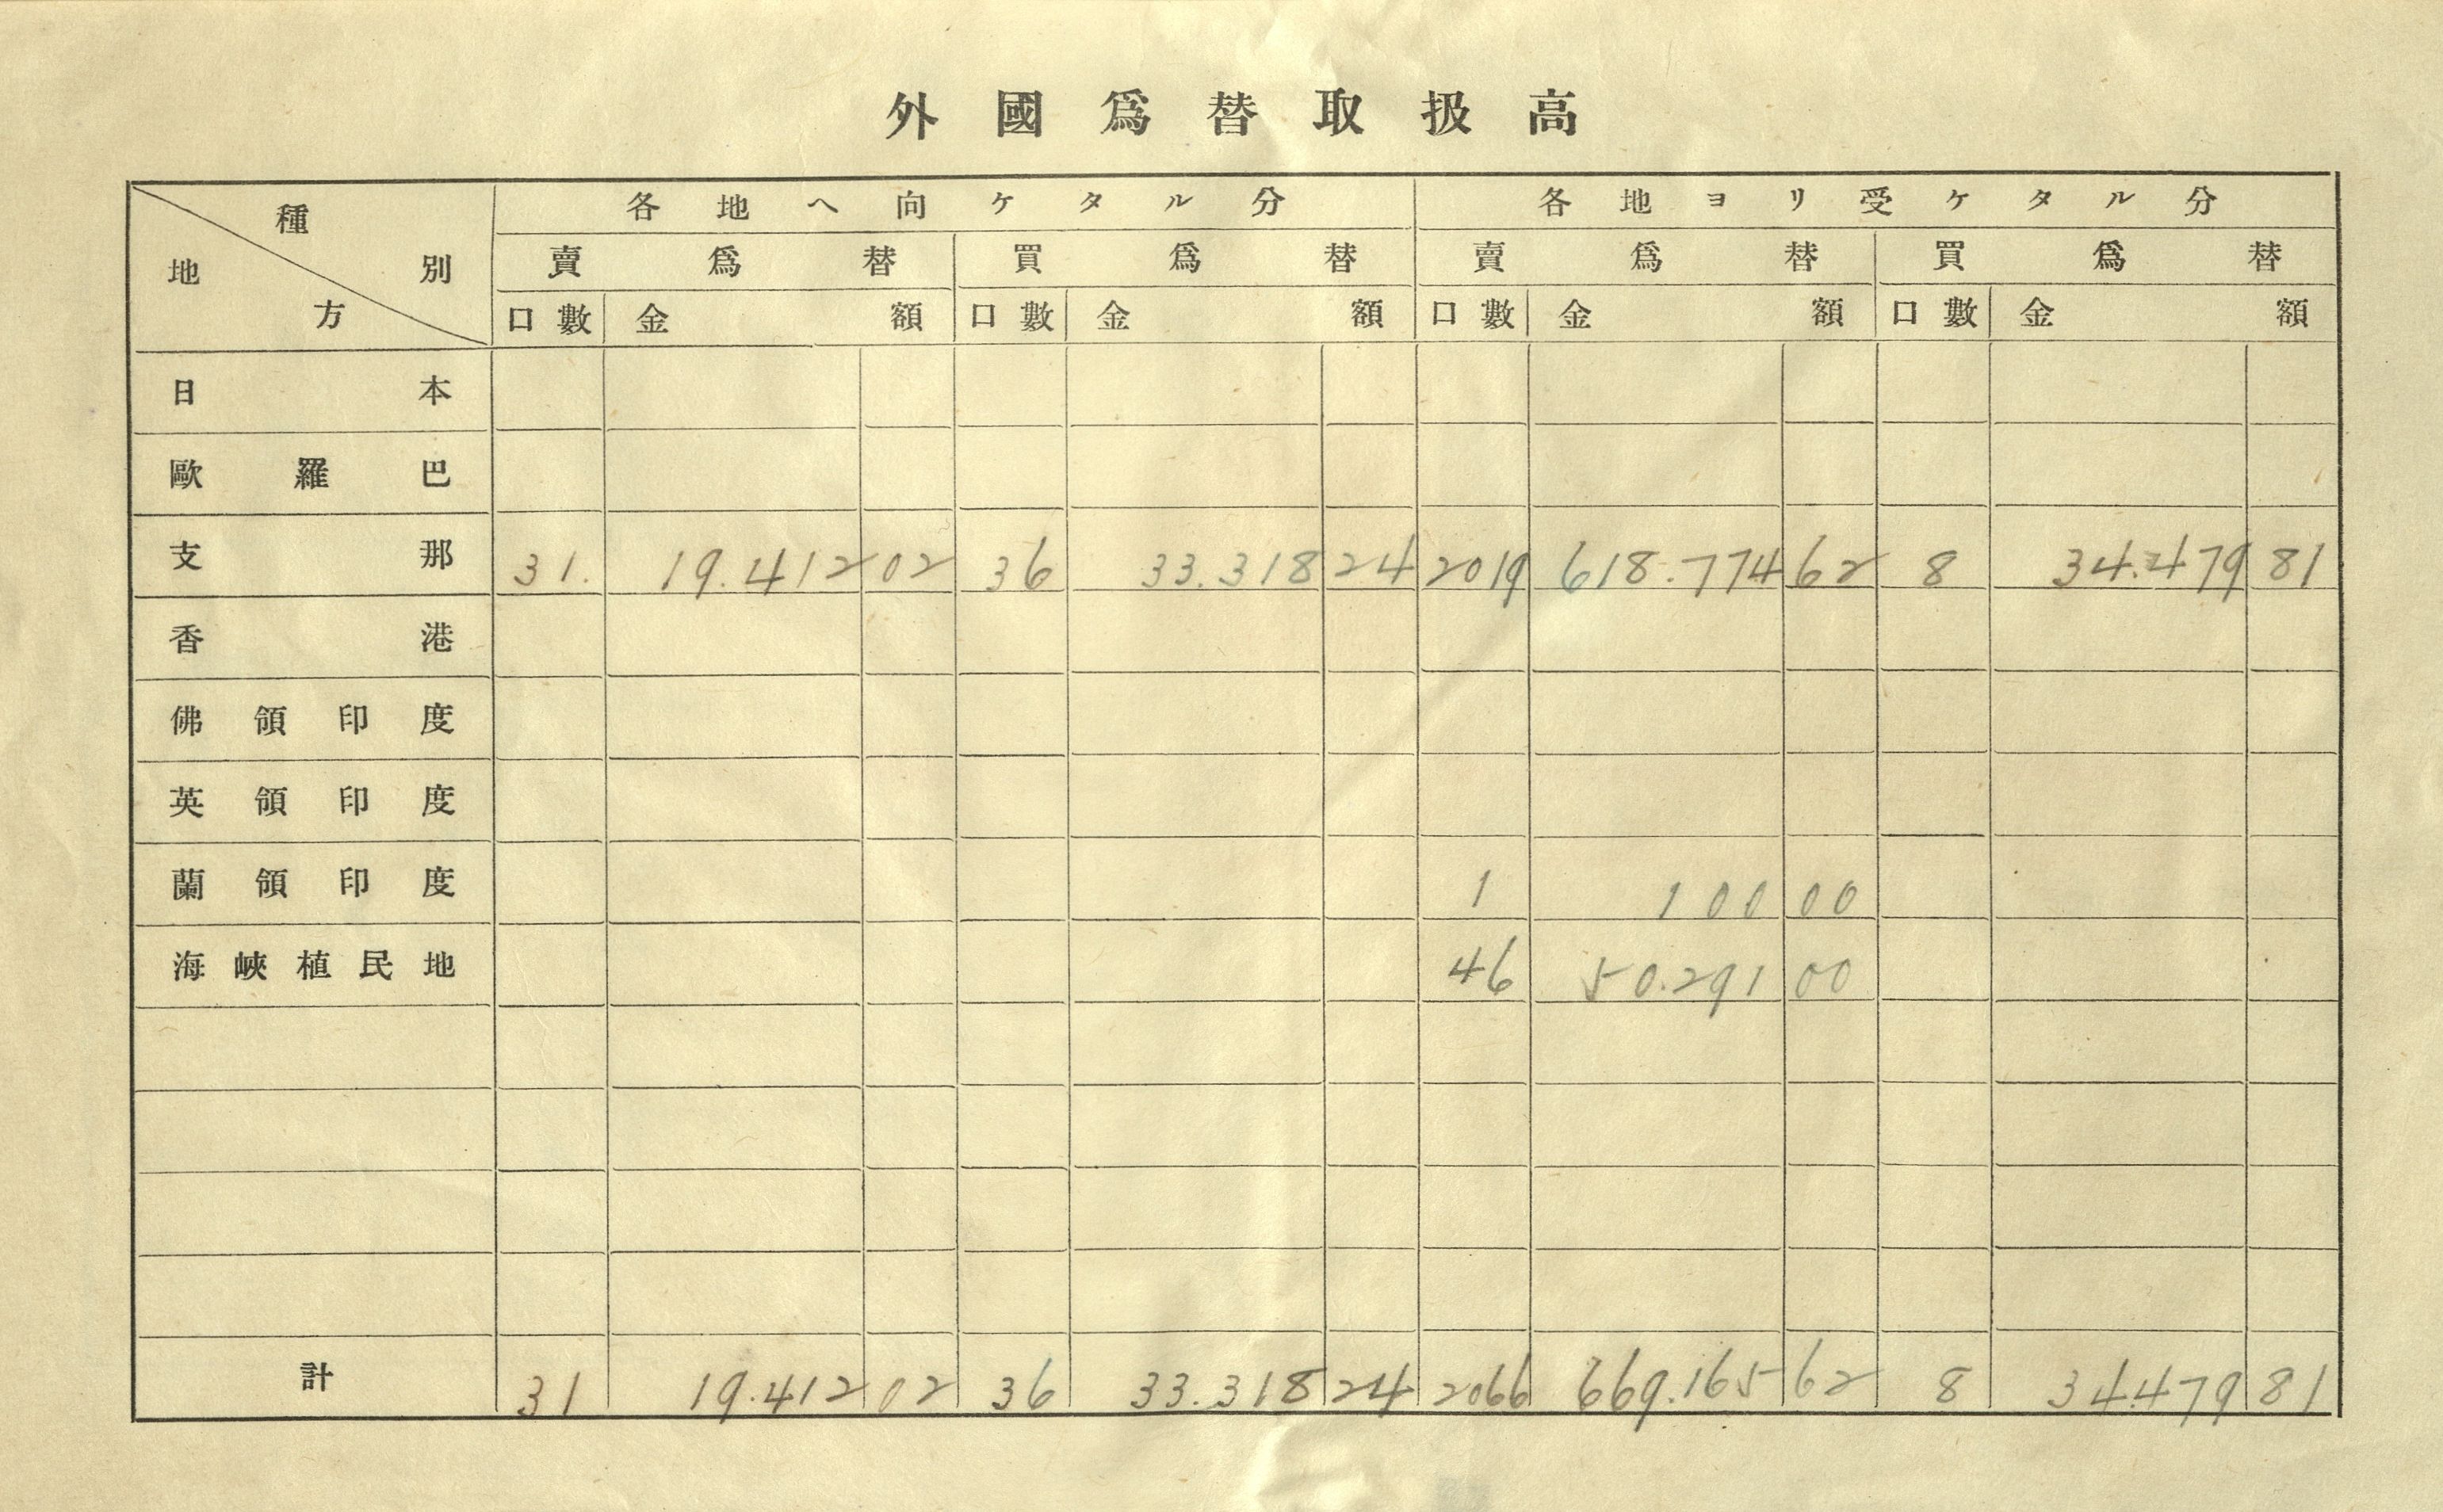 外國爲替取扱高
種別 地方 各地へ向ケタル分 各地ヨリ受ケタル分
賣爲替 買爲替 賣爲替 買爲替
口數 金額 口數 金額 口數 金額 口數 金額
日本
歐羅巴
支那 31. 19.412 02 36 33.318 24 2019 618.774 62 8 34.479 81
香港
佛領印度
英領印度
蘭領印度 1 100 00
海峽植民地 46 50.291 00
計 31 19.412 02 36 33.318 24 2066 669.165 62 8 34.479 81